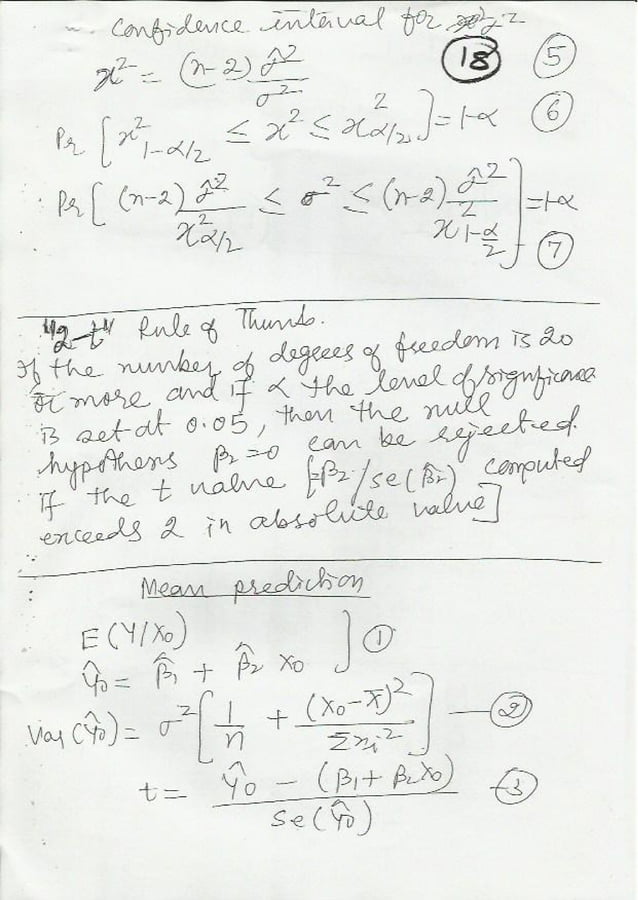 Confidence interval for σ²
18
x² = (n-2) σ̂²/σ² (5)
Pr [x²1-α/2 ≤ x² ≤ x²α/2] = 1-α (6)
Pr [(n-2) σ̂²/x²α/2 ≤ σ² ≤ (n-2) σ̂²/x²1-α/2] = 1-α (7)
"2-t" Rule of Thumb.
If the number of degrees of freedom is 20
or more and if α the level of significance
is set at 0.05, then the null
hypothesis β2=0 can be rejected
if the t value [=β̂2/se(β̂2) computed
exceeds 2 in absolute value]
Mean prediction
E(Y/X0)
Ŷ0 = β̂1 + β̂2 X0 ] (1)
Var(Ŷ0) = σ² [1/n + (X0-X̄)²/Σxi²] — (2)
t = Ŷ0 - (β1 + β2X0)/Se(Ŷ0) - (3)